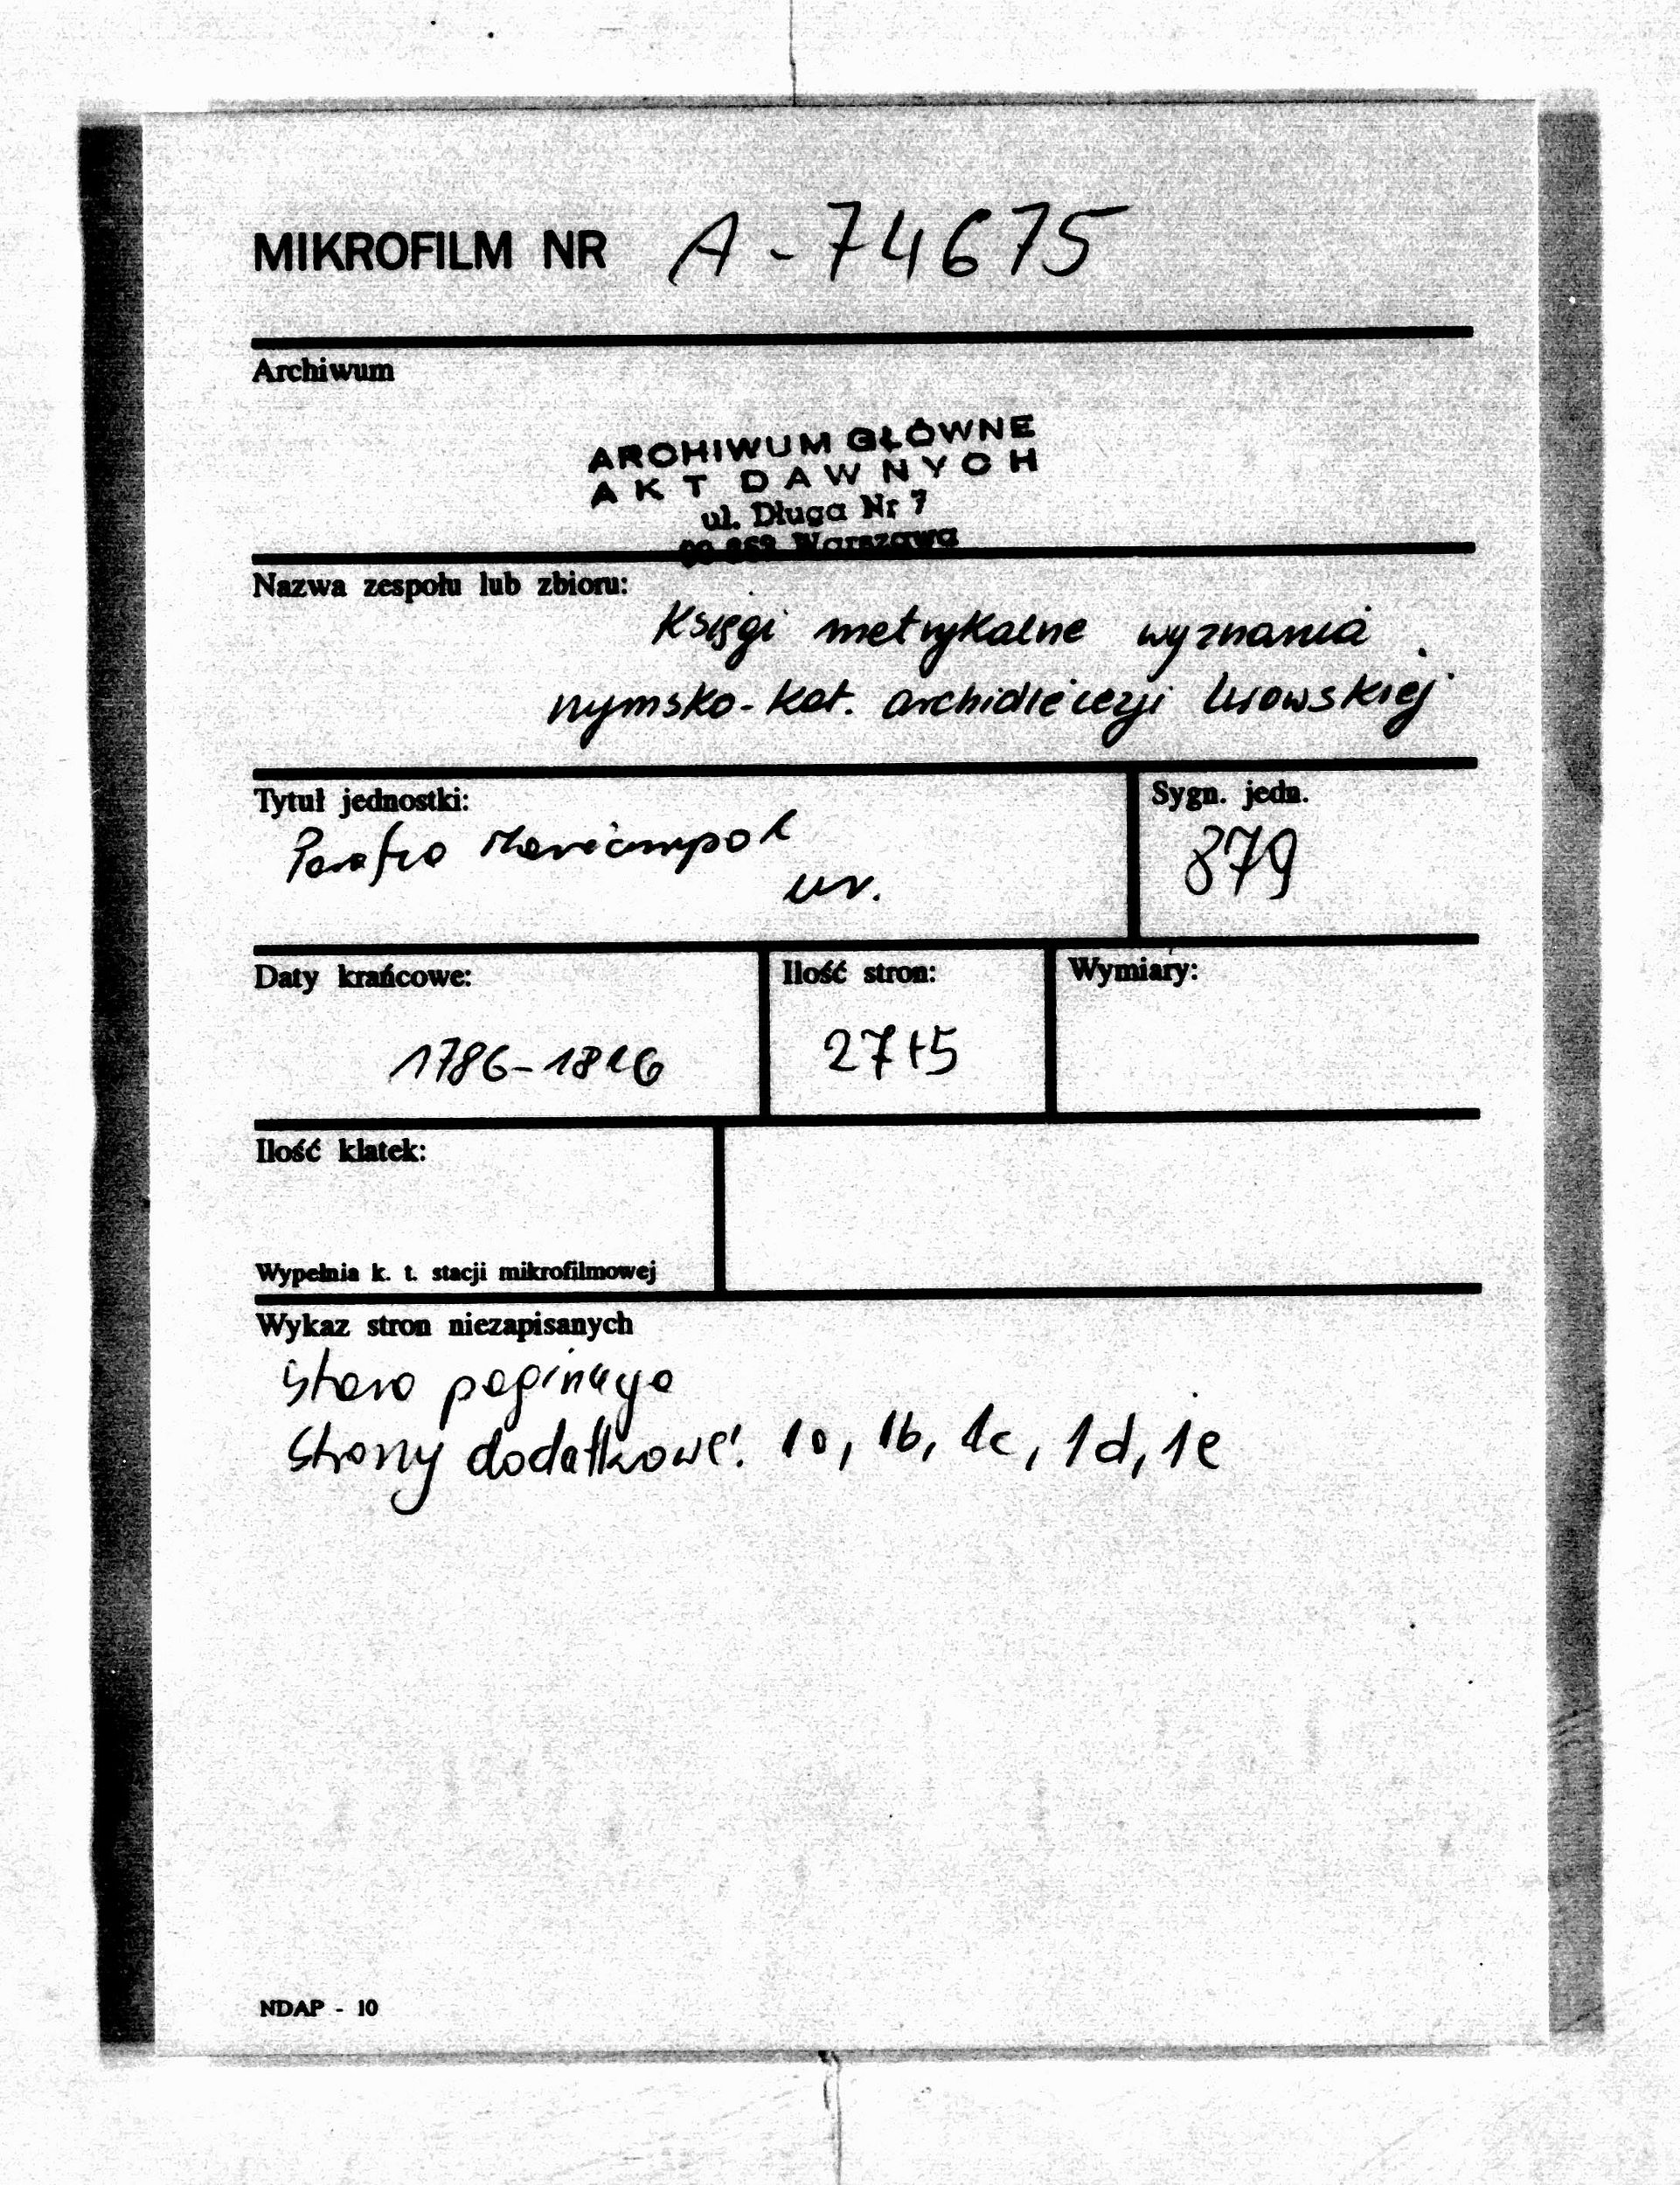 MIKROFILM NR A-74675
Archiwum
ARCHIWUM GŁÓWNE
AKT DAWNYCH
ul. Długa Nr 7
Warszawa
Nazwa zespołu lub zbioru:
Księgi metrykalne wyznania
rzymsko-kat. archidiecezji lwowskiej
Tytuł jednostki:
Parafia Mariampol
ur.
Sygn. jedn.
879
Daty krańcowe:
1786-1826
Ilość stron:
27+5
Wymiary:
Ilość klatek:
Wypełnia k. t. stacji mikrofilmowej
Wykaz stron niezapisanych
Stara paginacja
Strony dodatkowe: 1a, 1b, 1c, 1d, 1e
NDAP - 10